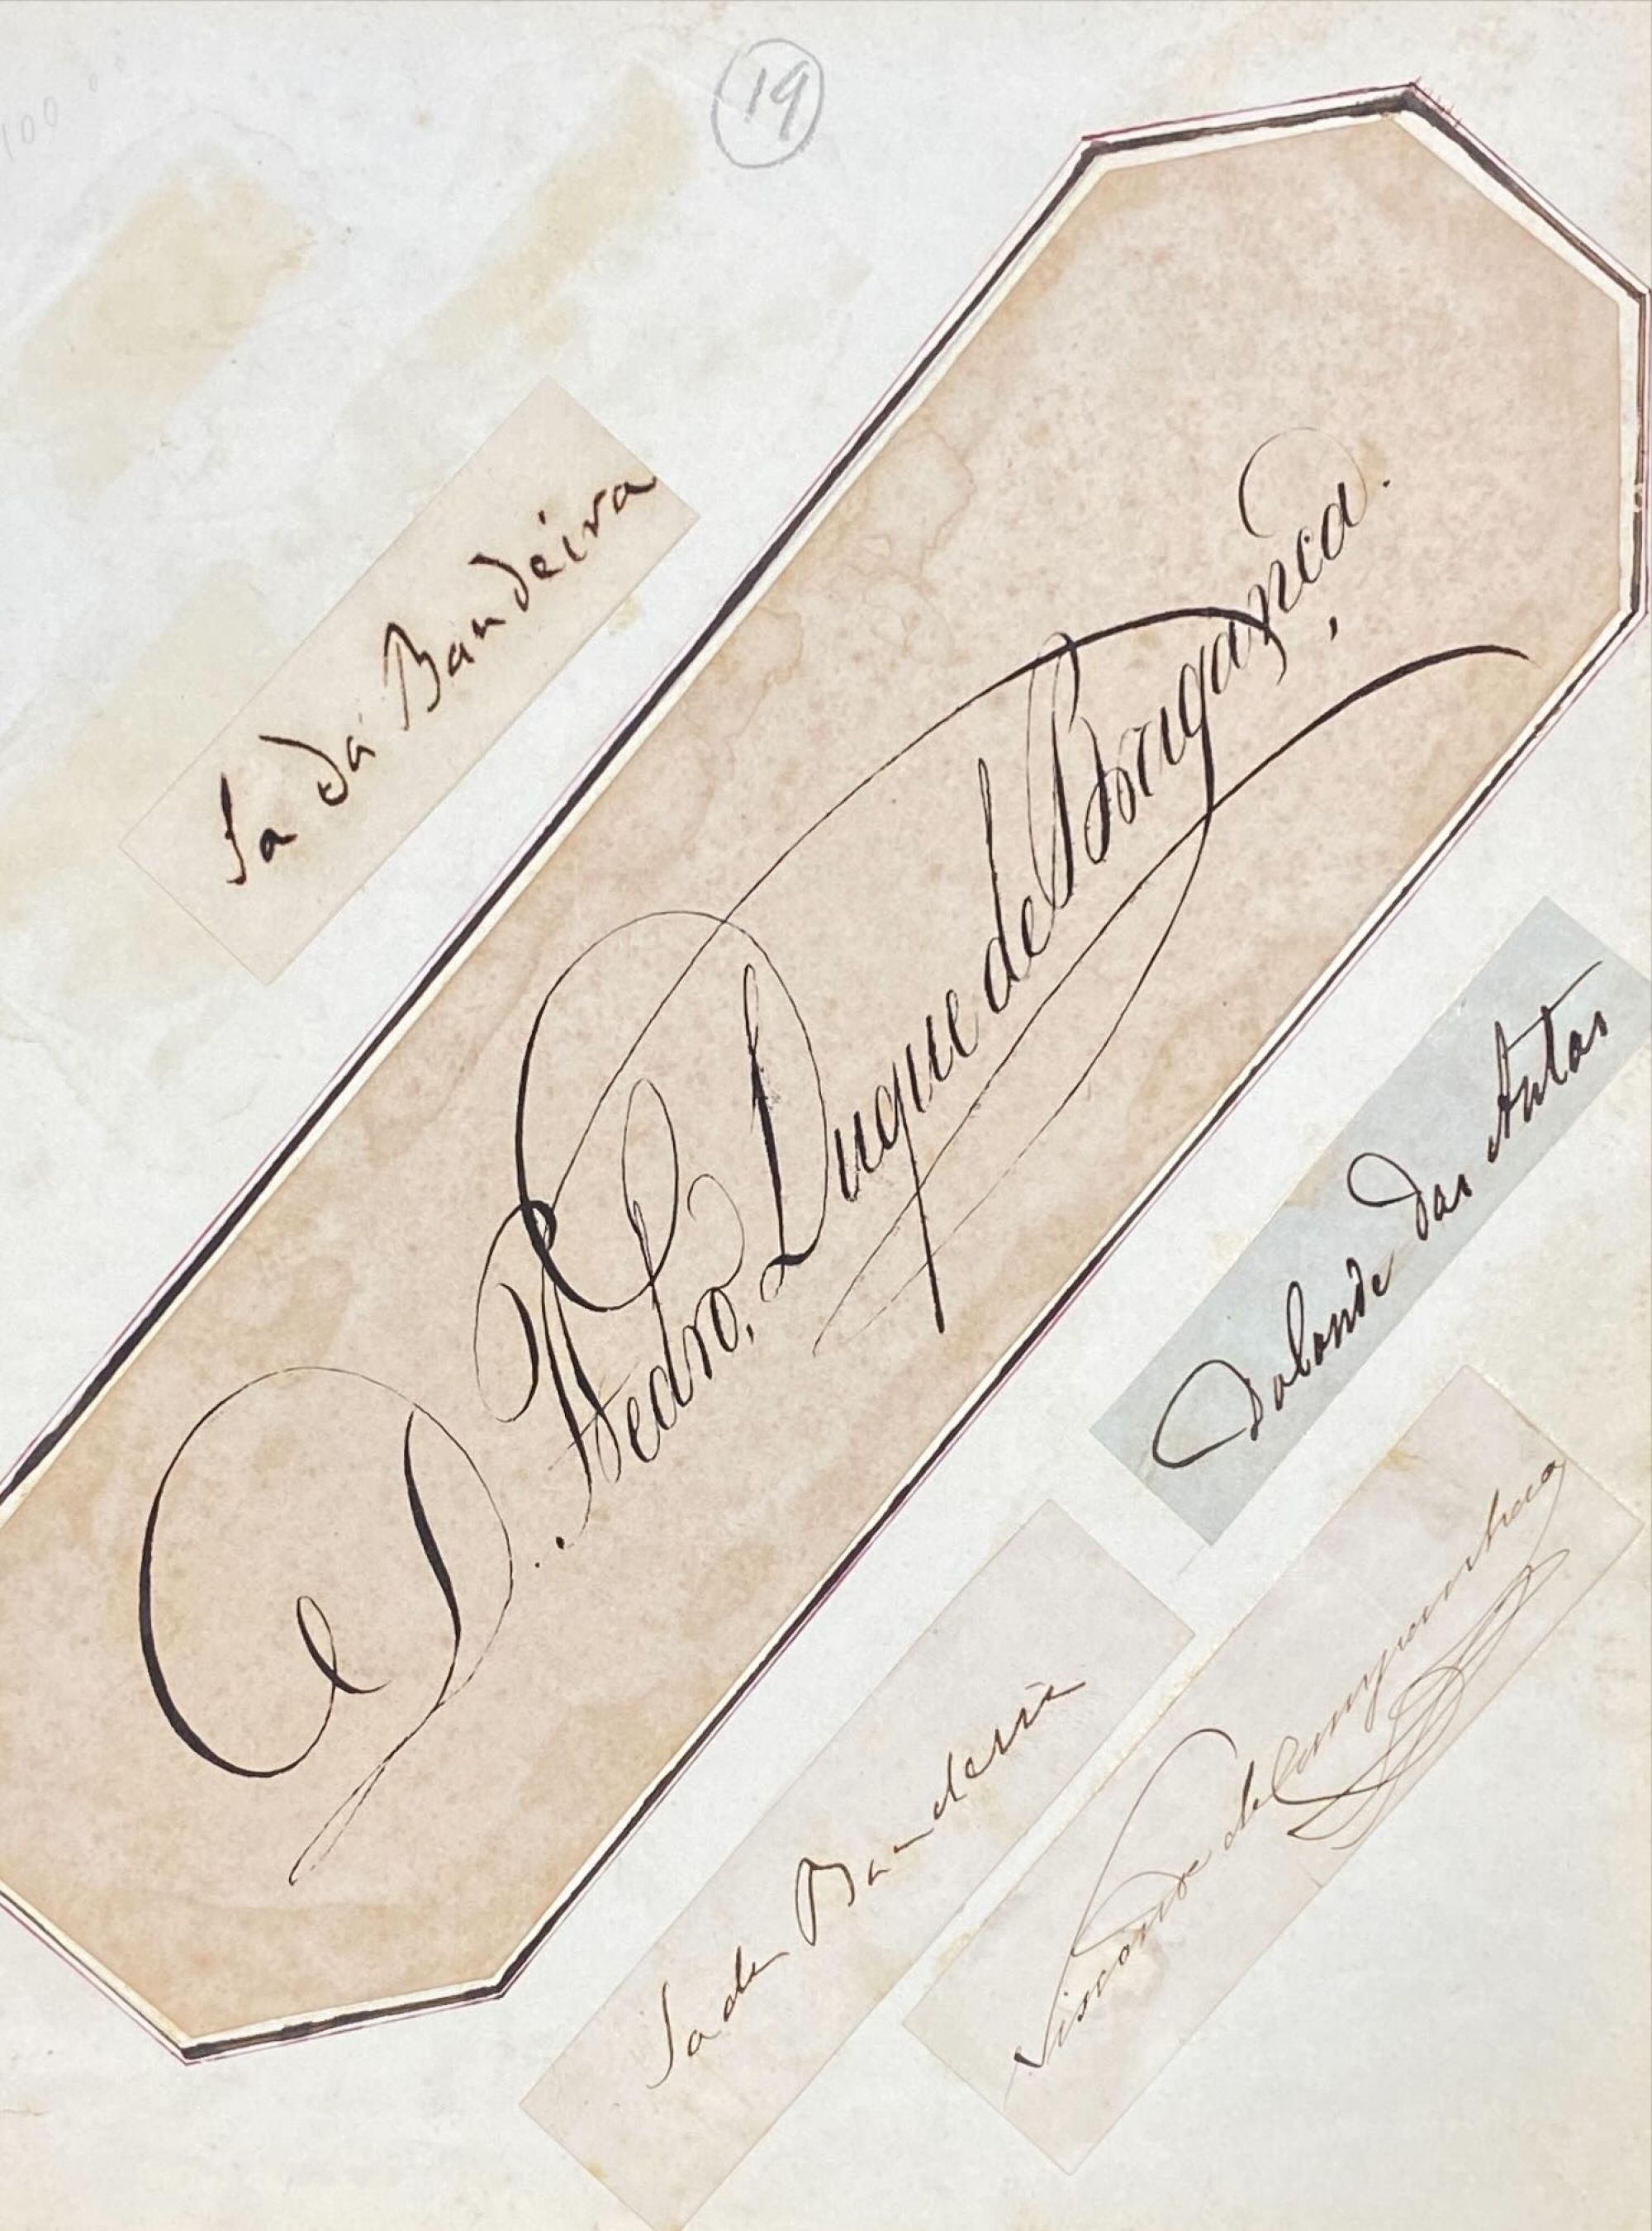 19
100
Sa da Bandeira
D. Pedro, Duque de Bragança.
Visconde das Antas
Sá da Bandeira
Visconde de Campanhã